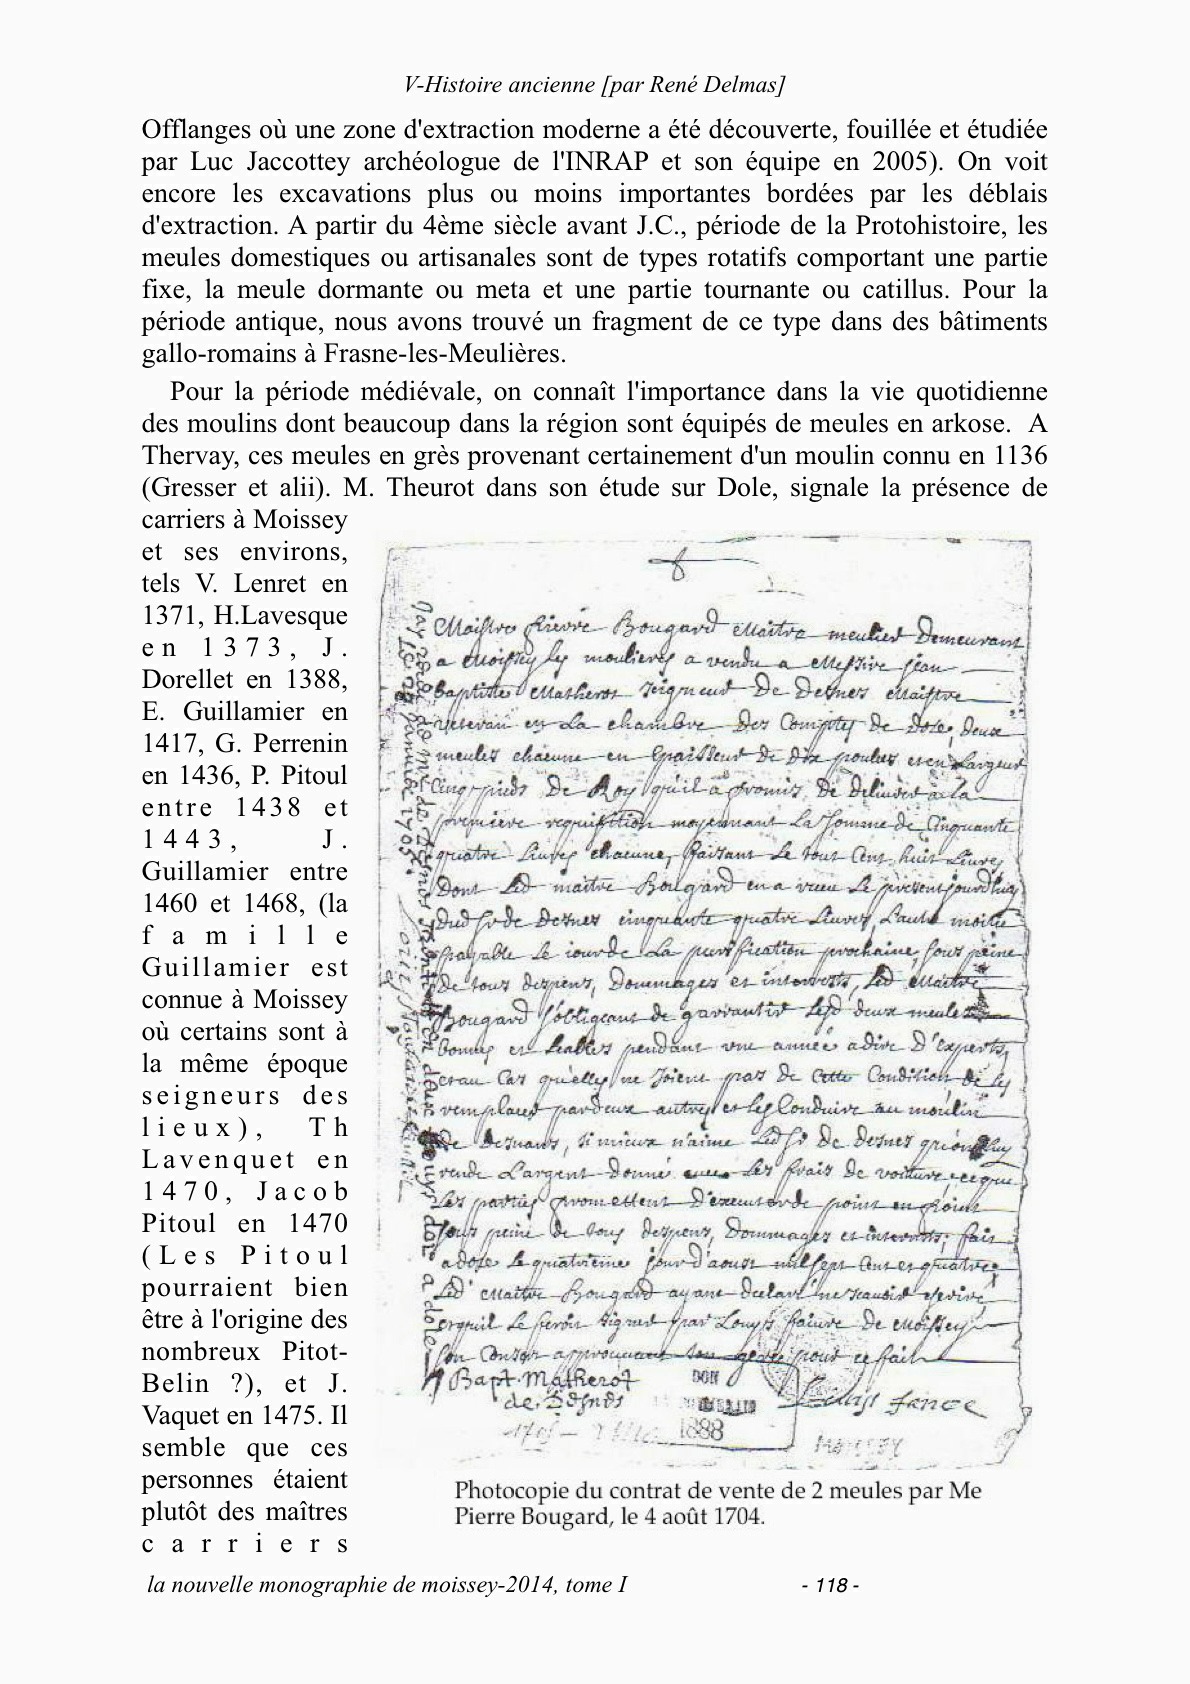 V-Histoire ancienne [par René Delmas]
Offlanges où une zone d'extraction moderne a été découverte, fouillée et étudiée
par Luc Jaccottey archéologue de l'INRAP et son équipe en 2005). On voit
encore les excavations plus ou moins importantes bordées par les déblais
d'extraction. A partir du 4ème siècle avant J.C., période de la Protohistoire, les
meules domestiques ou artisanales sont de types rotatifs comportant une partie
fixe, la meule dormante ou meta et une partie tournante ou catillus. Pour la
période antique, nous avons trouvé un fragment de ce type dans des bâtiments
gallo-romains à Frasne-les-Meulières.
Pour la période médiévale, on connaît l'importance dans la vie quotidienne
des moulins dont beaucoup dans la région sont équipés de meules en arkose. A
Thervay, ces meules en grès provenant certainement d'un moulin connu en 1136
(Gresser et alii). M. Theurot dans son étude sur Dole, signale la présence de
carriers à Moissey
et ses environs,
tels V. Lenret en
1371, H.Lavesque
en 1373, J.
Dorellet en 1388,
E. Guillamier en
1417, G. Perrenin
en 1436, P. Pitoul
entre 1438 et
1443, J.
Guillamier entre
1460 et 1468, (la
famille
Guillamier est
connue à Moissey
où certains sont à
la même époque
seigneurs des
lieux), Th
Lavenquet en
1470, Jacob
Pitoul en 1470
(Les Pitoul
pourraient bien
être à l'origine des
nombreux Pitot-
Belin ?), et J.
Vaquet en 1475. Il
semble que ces
personnes étaient
plutôt des maîtres
carriers
Maistre Pierre Bougard maitre meulier demeurant
a Moissey les moulieres a vendu a Messire jean
baptiste Matherot seigneur de desnes Maistre
en la chambre des Comptes de dole, deux
meules chacune en Epaisseur de dix poulces et en Largeur
Cinq pieds de Roy qu'il a promis de delivrer a la
premiere requisition moyennant la somme de Cinquante
quatre Livres chacune, faisant le tout Cent huit Livres
dont Led maitre Bougard en a receu Le present jourdhuy
dud Sr de desnes cinquante quatre Livres, L'autre moitie
payable le jour de La purification prochaine, sous peine
de tous despens, dommages et interrests, Led Maitre
Bougard s'obligeant de garrantir Lesd deux meules
bonnes et pendant une année a dire d'Experts,
et au Cas qu'elles ne soient pas de Cette Condition de les
remplacer par deux autres et les Conduire au moulin
de desnans, si mieux n'aime Led Sr de desnes qu'on luy
rende L'argent donné avec les frais de voiture, ce que
Les parties promettent d'executer de point en point
sous peine de tous despens, dommages et interrests; fait
a dole le quatrieme jour d'aoust mil sept Cent et quatre
Led Maitre Bougard ayant declaré ne scavoir escrire,
signer par Louys faivre de Moissey
son approuvant pour ce fait
Bapt. Matherot
de Desnes
DON
1888
Louys fance
MOISSEY
Photocopie du contrat de vente de 2 meules par Me
Pierre Bougard, le 4 août 1704.
la nouvelle monographie de moissey-2014, tome I
- 118 -